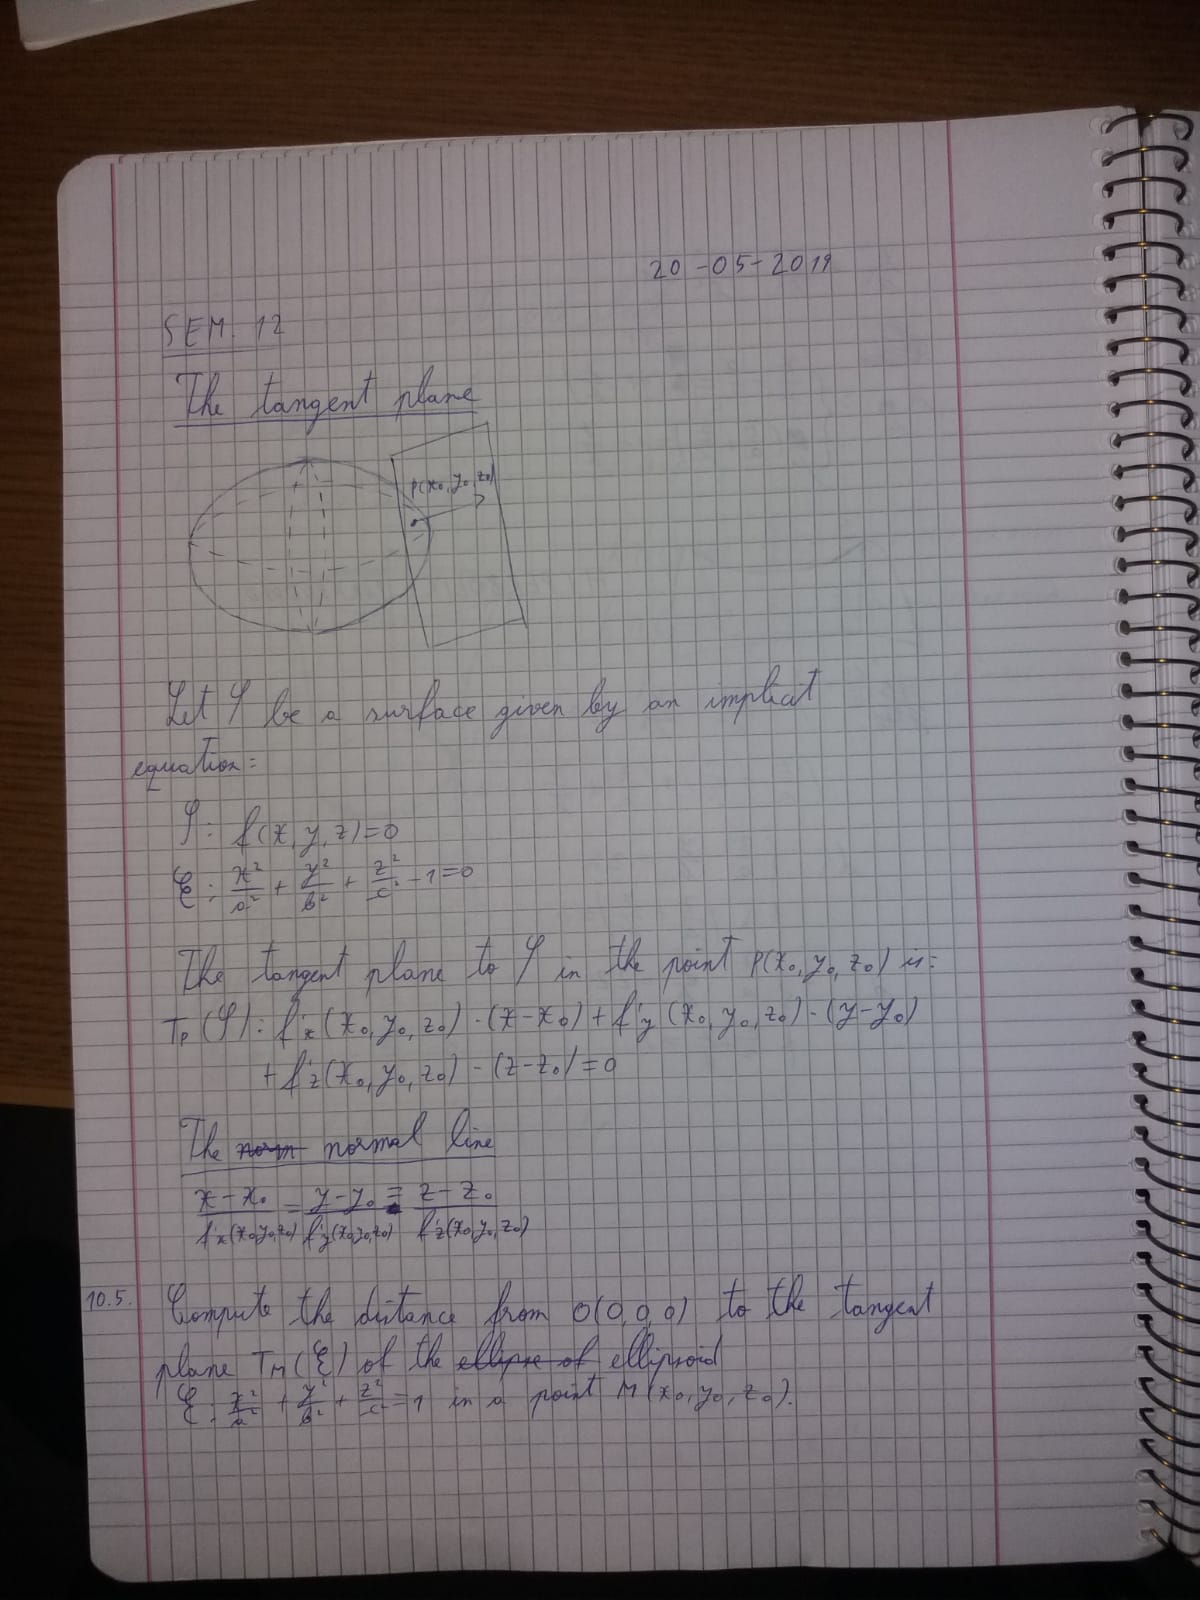 20-05-2019
SEM. 12
The tangent plane
P(x₀, y₀, z₀)
Let 𝒮 be a surface given by an implicit
equation:
𝒮: f(x, y, z)=0
ℰ: x²/a² + y²/b² + z²/c² - 1 = 0
The tangent plane to 𝒮 in the point P(x₀, y₀, z₀) is:
T_P(𝒮): f'x(x₀, y₀, z₀) · (x-x₀) + f'y(x₀, y₀, z₀) · (y-y₀)
+ f'z(x₀, y₀, z₀) · (z-z₀) = 0
The norm normal line
(x-x₀)/f'x(x₀,y₀,z₀) = (y-y₀)/f'y(x₀,y₀,z₀) = (z-z₀)/f'z(x₀,y₀,z₀)
10.5. Compute the distance from O(0,0,0) to the tangent
plane T_M(ℰ) of the ellipse of ellipsoid
ℰ: x²/a² + y²/b² + z²/c² = 1 in a point M(x₀, y₀, z₀).